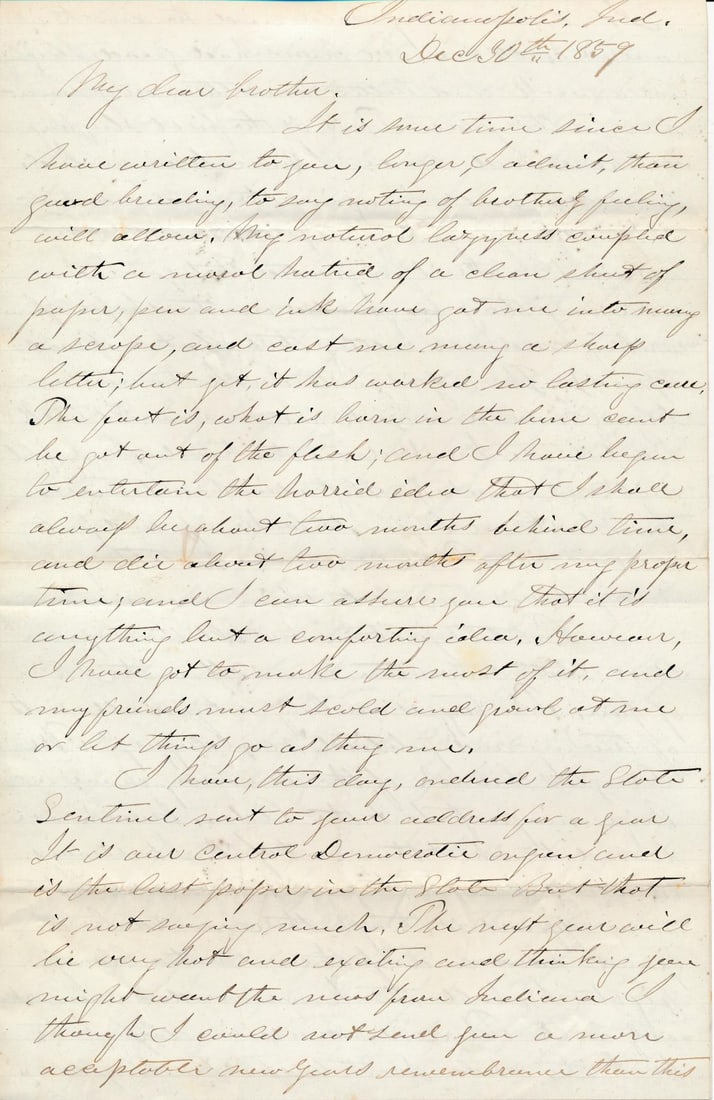 Indianapolis, Ind.
Dec 30th 1859
My dear brother.
It is some time since I
have written to you, longer, I admit, than
good breeding, to say noting of brotherly feeling,
will allow. My natural lazyness coupled
with a moral hatred of a clean sheet of
paper, pen and ink have got me into many
a scrape, and cost me many a sharp
letter; but yet, it has worked no lasting cure.
The fact is, what is born in the bone cant
be got out of the flesh; and I have begun
to entertain the horrid idea that I shall
always be about two months behind time,
and die about two months after my proper
time; and I can assure you that it is
anything but a comforting idea. However,
I have got to make the most of it, and
my friends must scold and growl at me
or let things go as they are.
I have, this day, ordered the State
Sentinel sent to your address for a year
It is our central Democratic organ and
is the best paper in the State But that
is not saying much. The next year will
be very hot and exciting and thinking you
might want the news from Indiana I
though I could not send you a more
acceptable new years remembrance than this